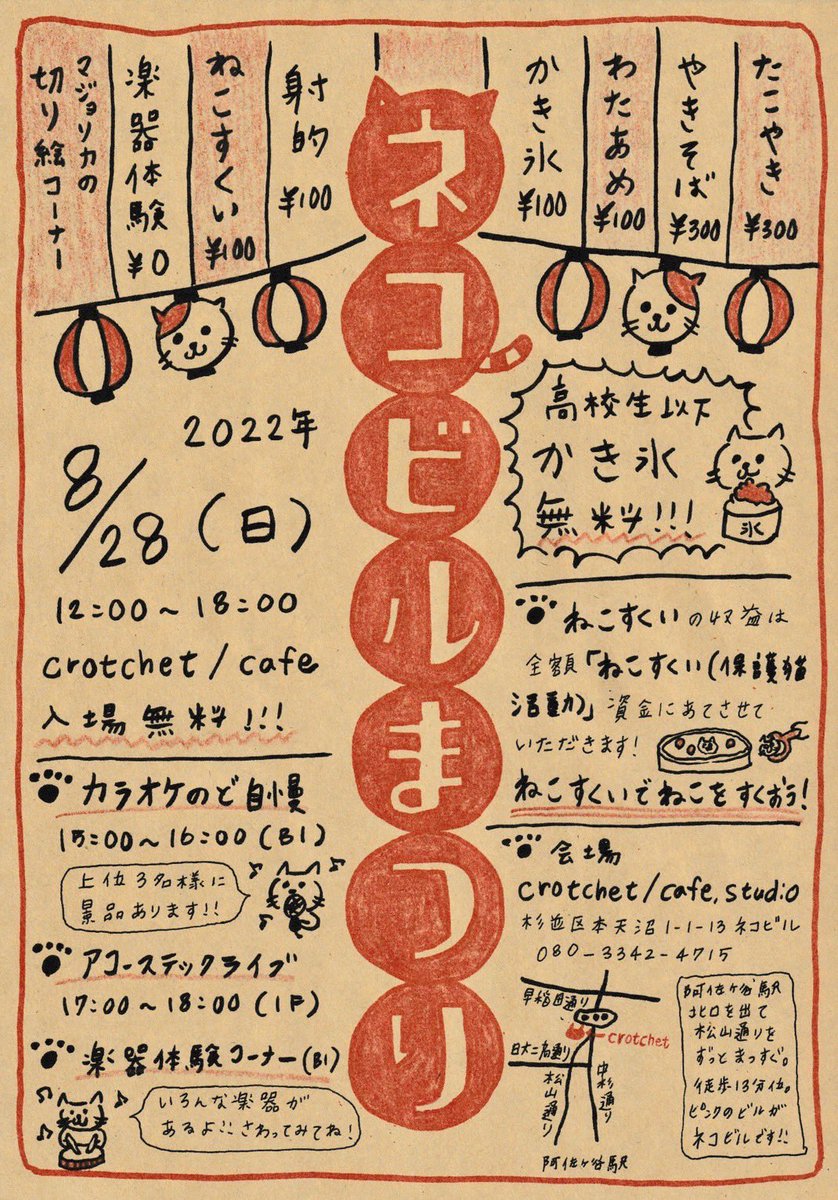 ネコビルまつり
たこやき ¥300
やきそば ¥300
わたあめ ¥100
かき氷 ¥100
射的 ¥100
ねこすくい ¥100
楽器体験 ¥0
マジョリカの
切り絵コーナー
高校生以下
かき氷
無料!!!
氷
2022年
8/28(日)
12:00~18:00
crotchet/cafe
入場無料!!!
カラオケのど自慢
15:00~16:00(B1)
上位3名様に
景品あります!!
アコーステックライブ
17:00~18:00(1F)
楽器体験コーナー(B1)
いろんな楽器が
あるよ!!さわってみてね!
ねこすくいの収益は
全額「ねこすくい(保護猫
活動)」資金にあてさせて
いただきます!
ねこすくいでねこをすくおう!
会場
crotchet/cafe,studio
杉並区本天沼1-1-13ネコビル
080-3342-4715
早稲田通り
crotchet
日大二高通り
松山通り
中杉通り
阿佐ヶ谷駅
阿佐ヶ谷駅
北口を出て
松山通りを
ずっとまっすぐ。
徒歩13分位。
ピンクのビルが
ネコビルです!!